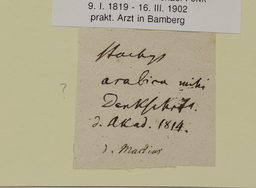 9. I. 1819 - 16. III. 1902
prakt. Arzt in Bamberg
?
Stachys
arabica mihi
Denkschrift.
d. Akad. 1814.
v. Martius